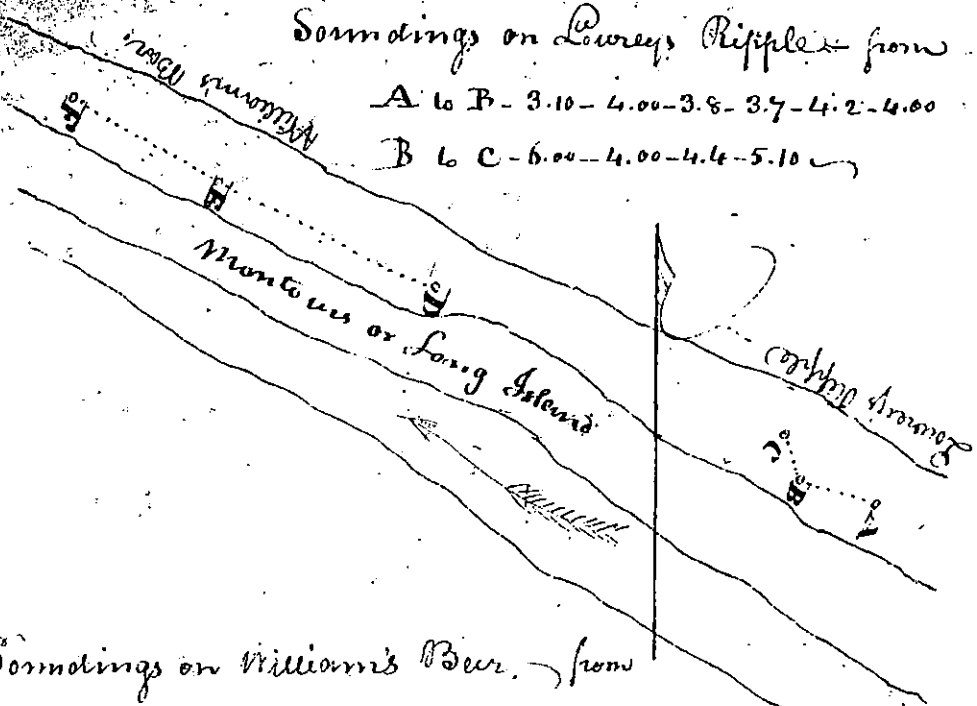 Soundings on Lowrey's Ripple from
A to B - 3.10 - 4.00 - 3.8 - 3.7 - 4.2 - 4.00
B to C - 6.00 - 4.00 - 4.4 - 5.10
William's Bar.
F
E
D
Montours or Long Island
Lowrey's Ripple
C
B
A
Soundings on William's Bar. from